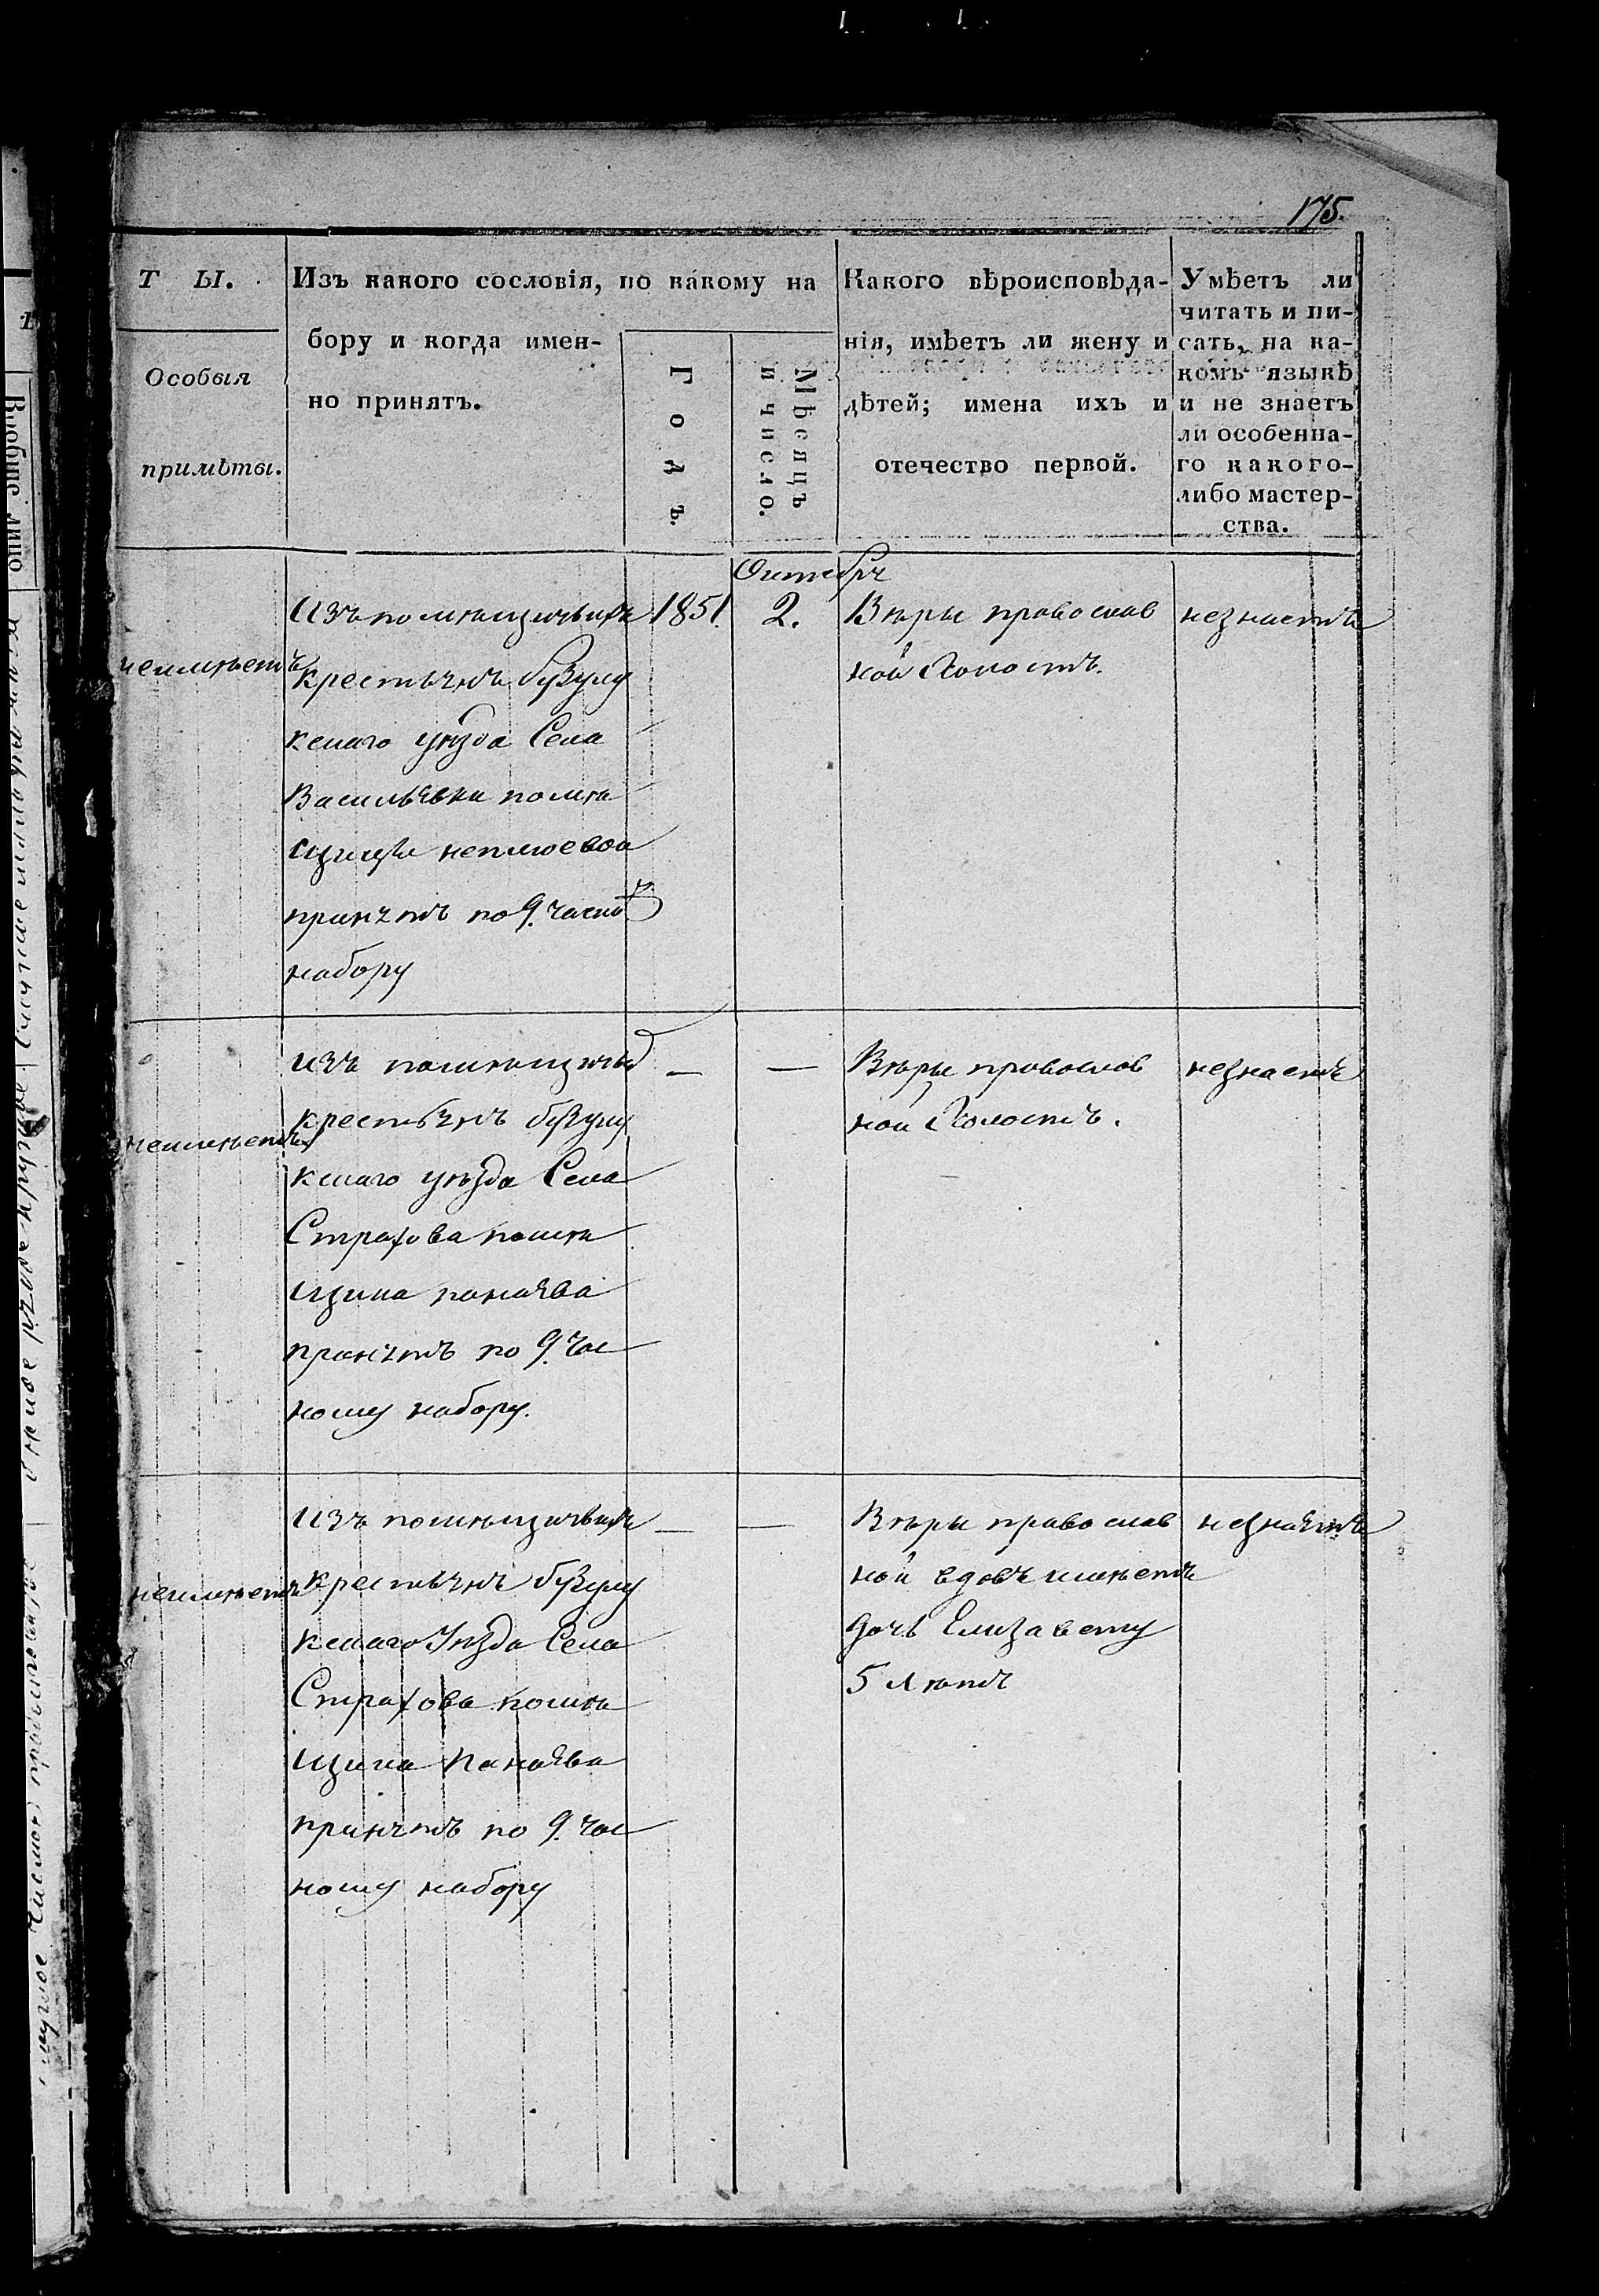 175.
Т Ы.
Особыя
примѣты.
Изъ какого сословія, по какому на
бору и когда имен-
но принятъ.
Годъ.
Мѣсяцъ
и число.
Какого вѣроисповѣда-
нія, имѣетъ ли жену и
дѣтей; имена ихъ и
отечество первой.
Умѣетъ ли
читать и пи-
сать, на ка-
комъ языкѣ
и не знаетъ
ли особенна-
го какого-
либо мастер-
ства.
неимѣетъ
Изъ помѣщичьихъ
крестьянъ бузулу
кскаго уѣзда Села
Васильевки помѣ
щицы неплюевой
принятъ по 9. частн
набору
1851.
Октября
2.
Вѣры православ
ной Холостъ.
незнаетъ
неимѣетъ
изъ помѣщичьих
крестьянъ бузулу
кскаго уѣзда Села
Страхова помѣ
щика панаева
принятъ по 9. час
ному набору.
—
—
Вѣры православ
ной Холостъ.
незнаетъ
неимѣетъ
изъ помѣщичьихъ
крестьянъ бузулу
кскаго Уѣзда Села
Страхова помѣ
щика Панаева
принятъ по 9. час
ному набору
—
—
Вѣры православ
ной вдовъ имѣетъ
дочь Елизавету
5 лѣтъ
незнаетъ